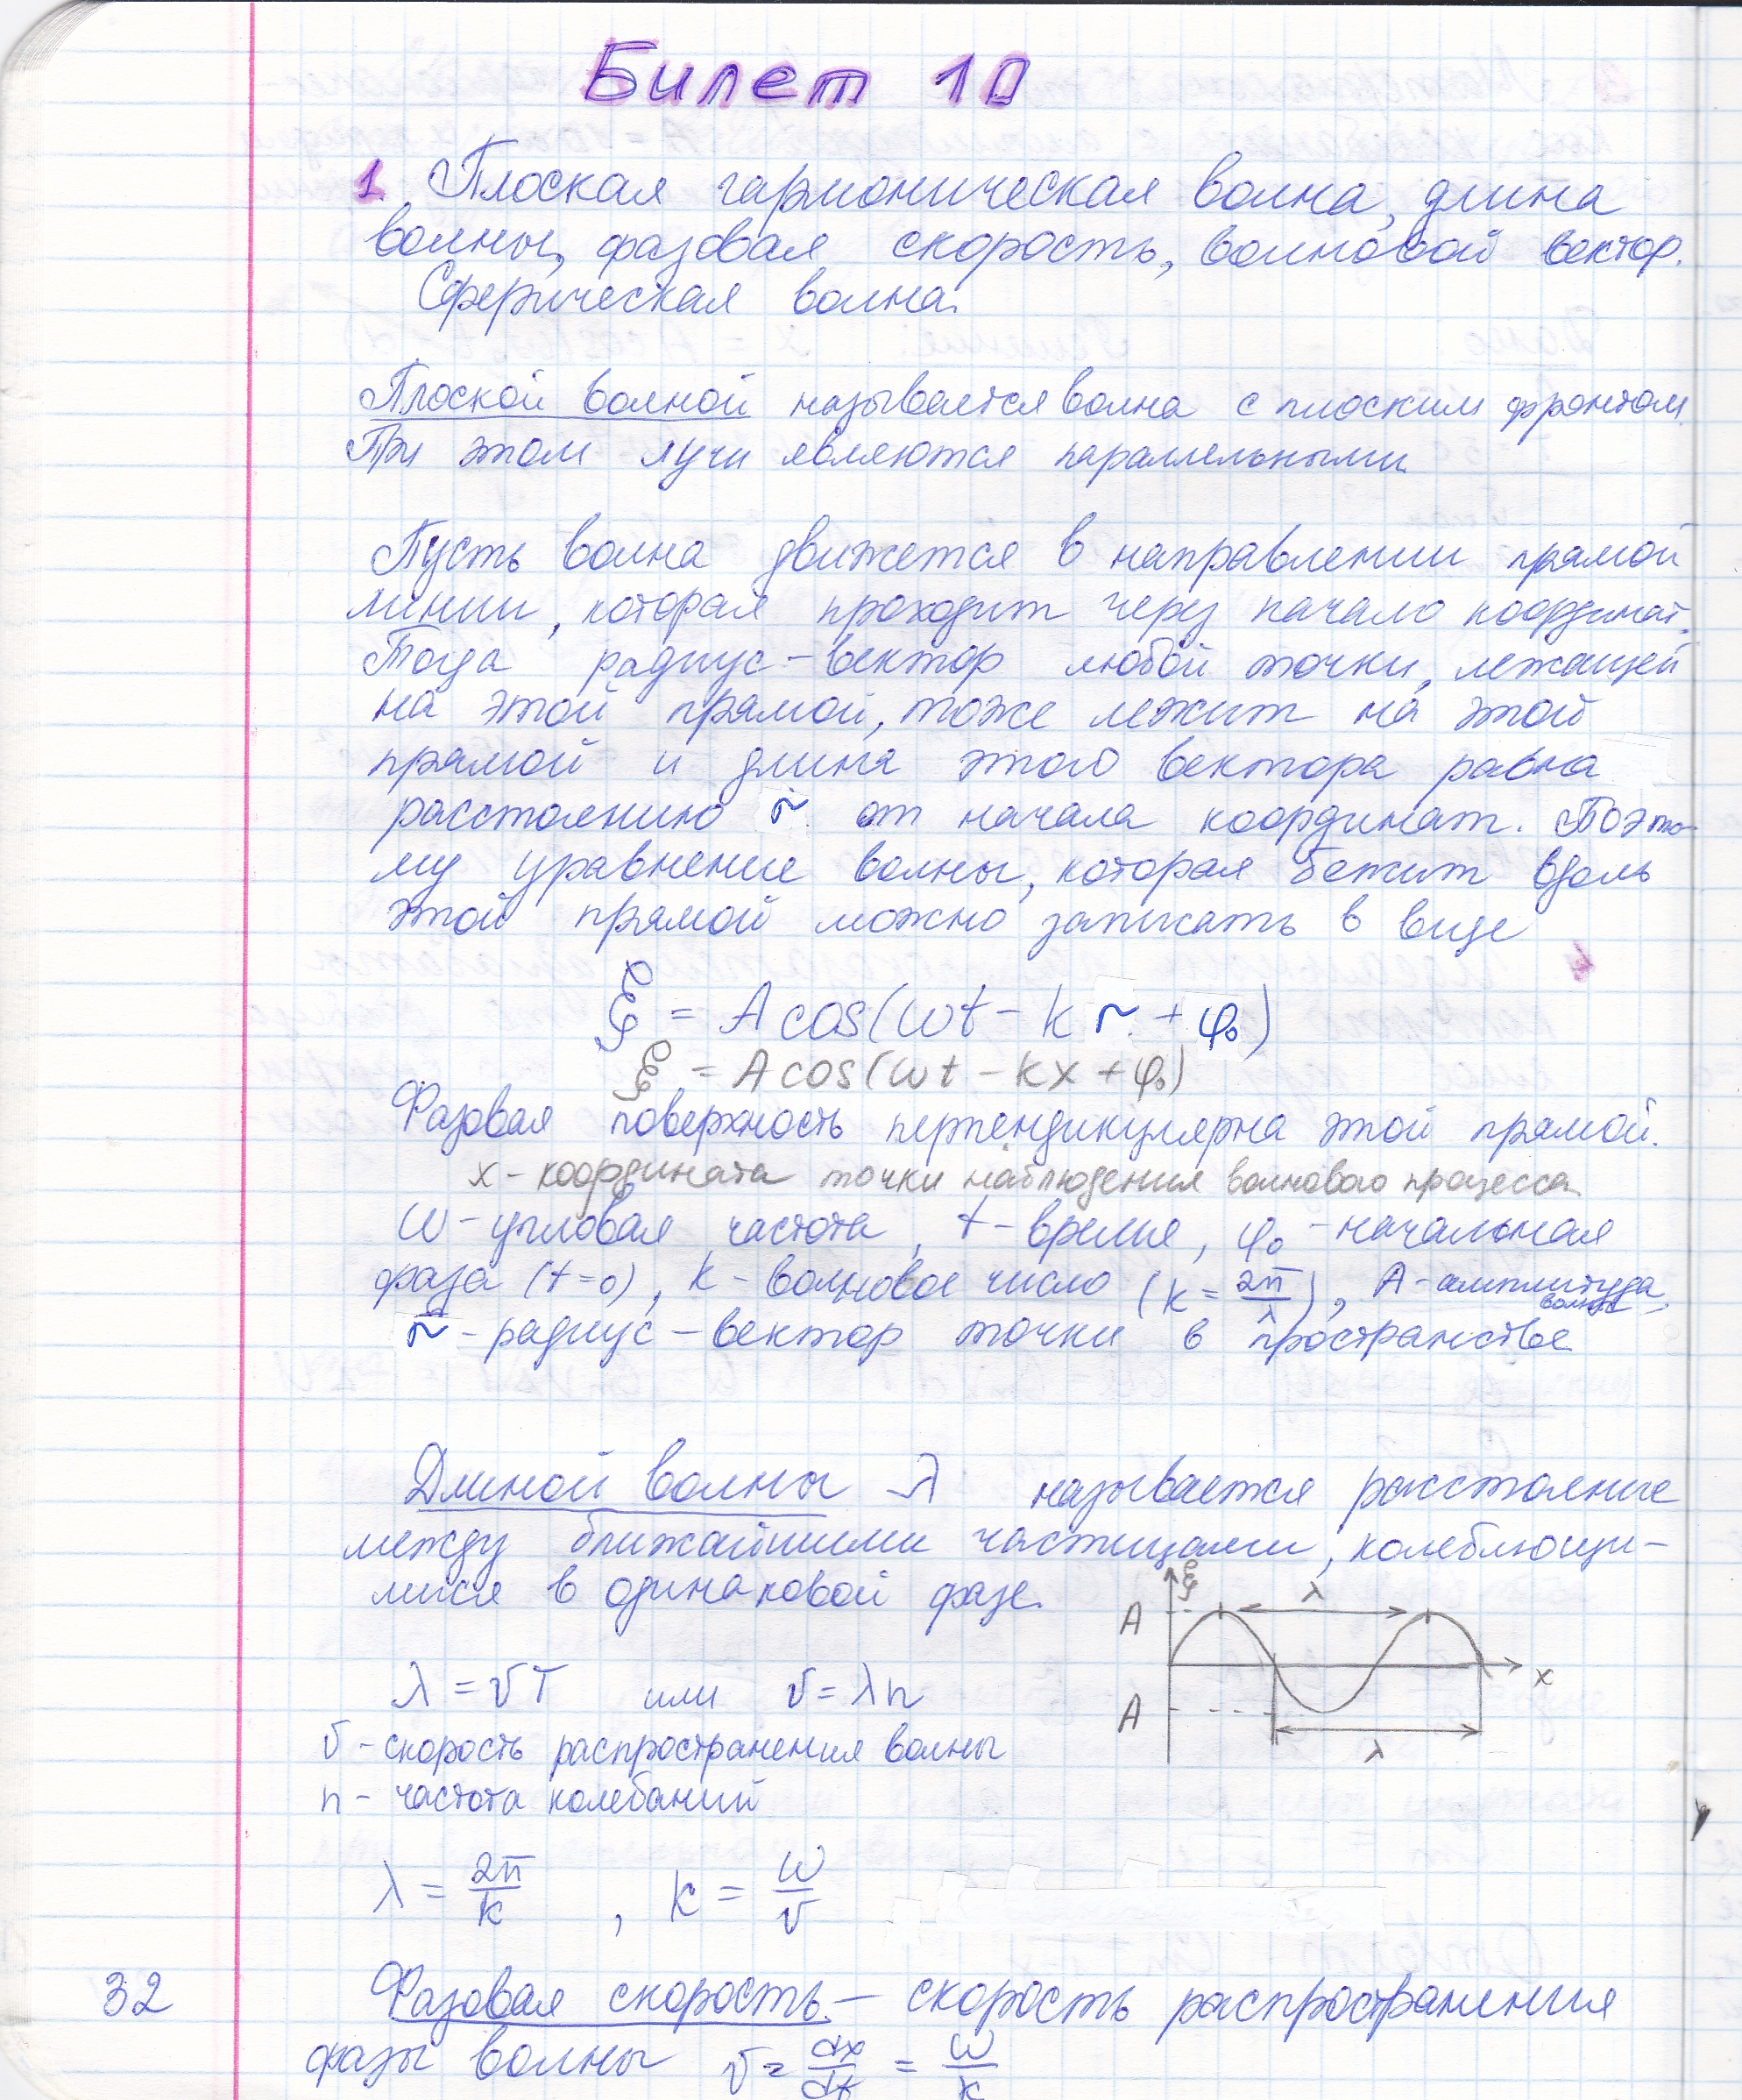 Билет 10
1. Плоская гармоническая волна, длина
волны, фазовая скорость, волновой вектор.
Сферическая волна.
Плоской волной называется волна с плоским фронтом.
При этом лучи являются параллельными.
Пусть волна движется в направлении прямой
линии, которая проходит через начало координат.
Тогда радиус-вектор любой точки, лежащей
на этой прямой, тоже лежит на этой
прямой и длина этого вектора равна
расстоянию r от начала координат. Поэто-
му уравнение волны, которая бежит вдоль
этой прямой можно записать в виде
ξ = A cos(ωt - k r + φ₀)
ξ = A cos(ωt - kx + φ₀)
Фазовая поверхность перпендикулярна этой прямой.
x - координата точки наблюдения волнового процесса
ω - угловая частота, t - время, φ₀ - начальная
фаза (t=0), k - волновое число (k = 2π/λ), A - амплитуда волны,
r - радиус-вектор точки в пространстве
Длиной волны λ называется расстояние
между ближайшими частицами, колеблющи-
мися в одинаковой фазе.
ξ
A λ
x
A
λ
λ = vT или v = λn
v - скорость распространения волны
n - частота колебаний
λ = 2π/k , k = ω/v
32
Фазовая скорость - скорость распространения
фазы волны v = dx/dt = ω/k